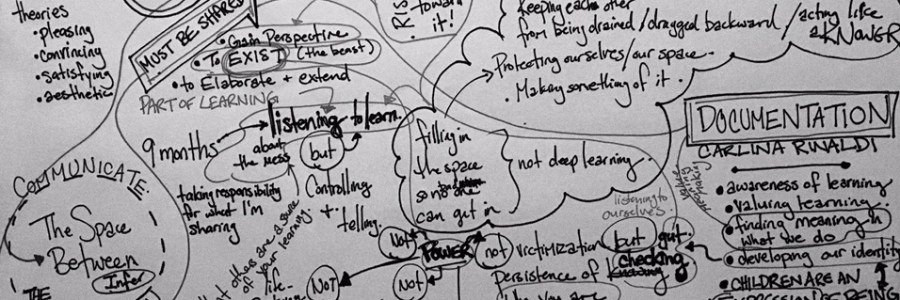 theories
• pleasing
• convincing
• satisfying
• aesthetic
MUST BE SHARED
• Gain Perspective
• To EXIST (the beast)
• to Elaborate + extend
PART OF LEARNING
toward
it!
Keeping each other
from being drained/dragged backward/acting like
a KNOWER
Protecting ourselves/our space.
• Making something of it.
9 months
listening to learn.
about
the mess
but
Controlling
+
telling.
taking responsibility
for what I'm
sharing
of your learning.
filling in
the space
so no one
can get in
not deep learning.
COMMUNICATE:
The Space
Between
Infer
THE
DOCUMENTATION
CARLINA RINALDI
• awareness of learning
• valuing learning.
• finding meaning in
what we do
• developing our identity
• CHILDREN ARE AN
listening to
ourselves.
Not
POWER
not victimization but gut.
checking
NOT
Not
Persistence of
like you are